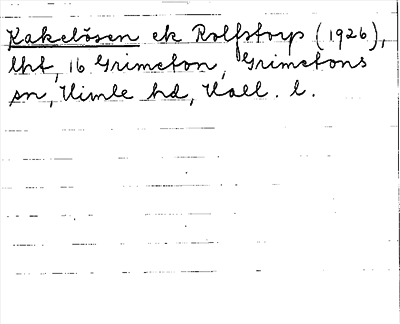 Kakelösen ek Rolfstorp (1926),
lht, 16 Grimeton, Grimetons
sn, Himle hd, Hall. l.